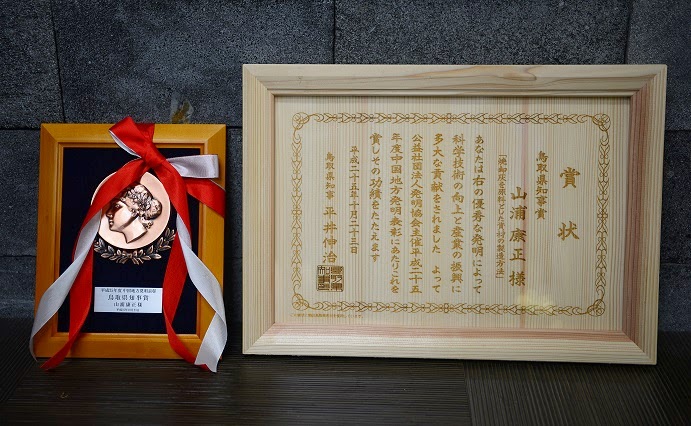 賞状
鳥取県知事賞
山浦康正様
あなたは右の優秀な発明によって
科学技術の向上と産業の振興に
多大な貢献をされました よって
公益社団法人発明協会主催平成二十五
年度中国地方発明表彰にあたりこれを
賞しその功績をたたえます
平成二十五年十月二十三日
鳥取県知事 平井伸治
平成25年度中国地方発明表彰
鳥取県知事賞
山浦康正様